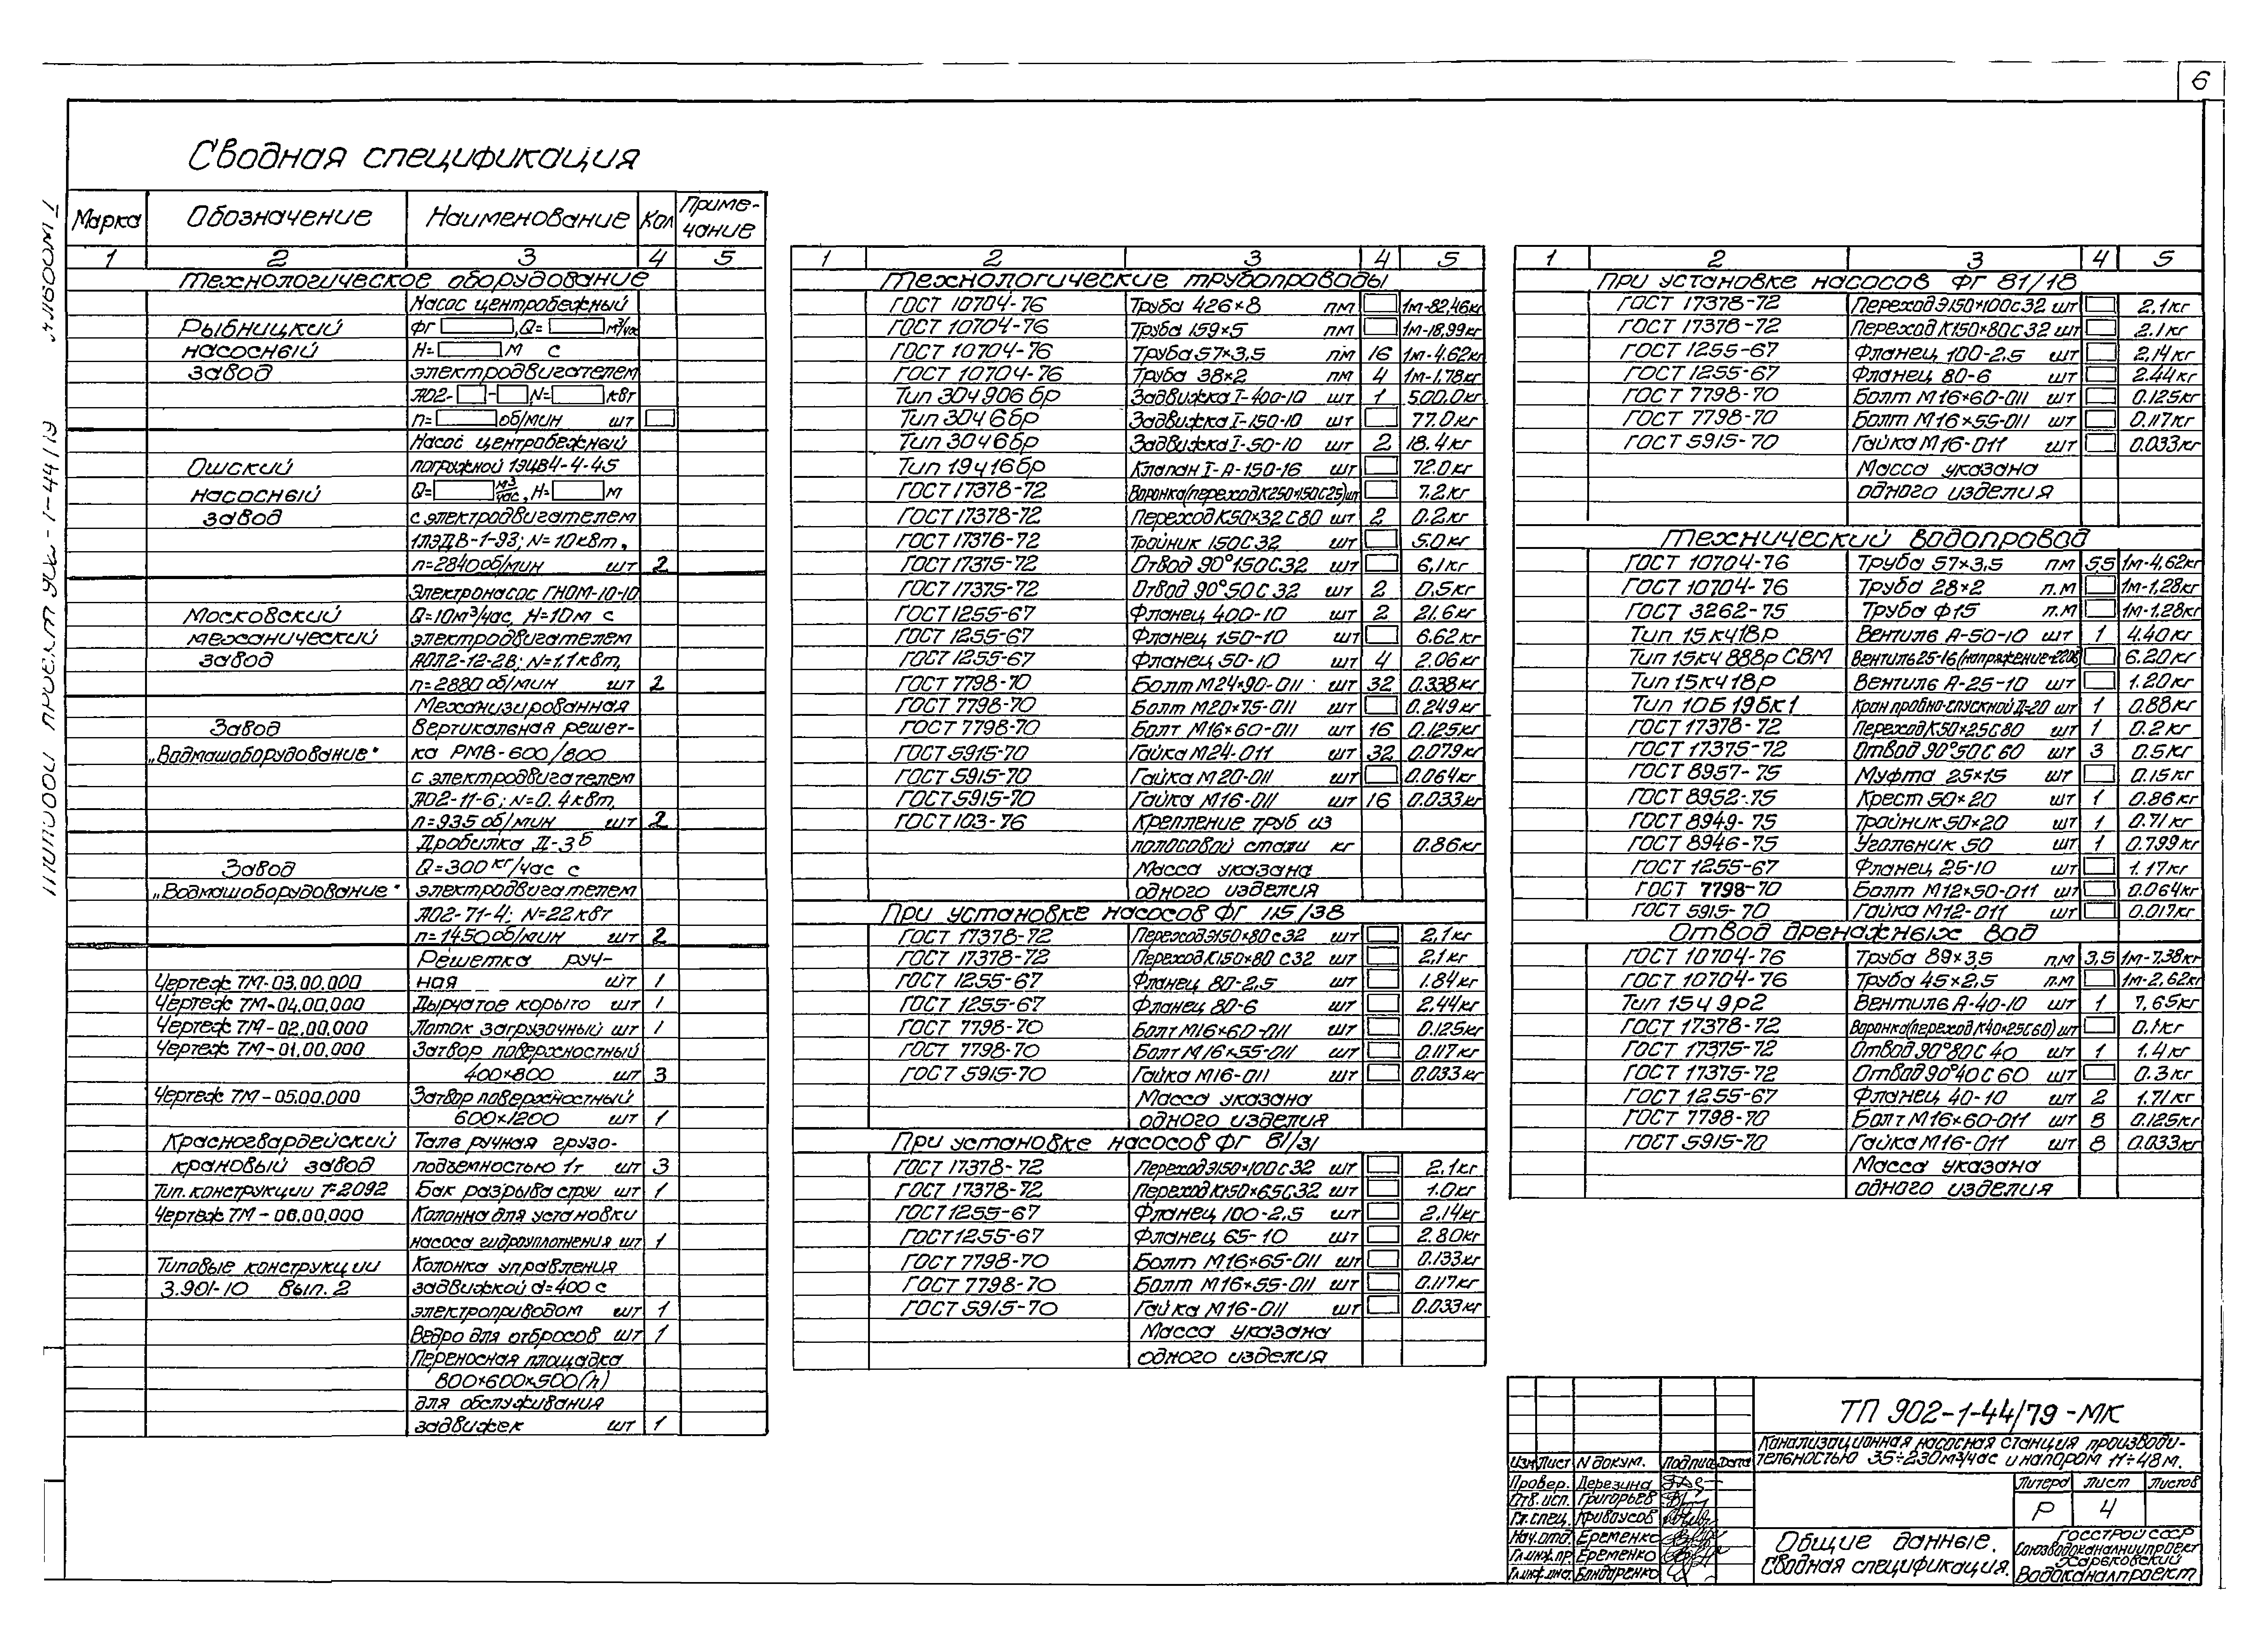 6
Сводная спецификация
Марка Обозначение Наименование Кол Приме-
чание
1 2 3 4 5
Технологическое оборудование
Насос центробежный
Рыбницкий ФГ , Q= м³/час
насосный H= м с
завод электродвигателем
АО2- - N= кВт
n= об/мин шт
Насос центробежный
Ошский погружной 1ЭЦВ4-4-45
насосный Q= м³/час, H= м
завод с электродвигателем
1ПЭДВ-1-93; N=10кВт,
n=2840 об/мин шт 2
Электронасос ГНОМ-10-10
Московский Q=10м³/час, H=10м с
механический электродвигателем
завод АОЛ2-12-2В; N=1.1кВт,
n=2880 об/мин шт 2
Механизированная
Завод Вертикальная решет-
„Водмашоборудование" ка РМВ-600/800
с электродвигателем
АО2-11-6; N=0.4кВт,
n=935 об/мин шт 2
Дробилка Д-3б
Завод Q=300 кг/час с
„Водмашоборудование" электродвигателем
АО2-71-4; N=22кВт
n=1450 об/мин шт 2
Решетка руч-
Чертеж ТМ-03.00.000 ная шт 1
Чертеж ТМ-04.00.000 Дырчатое корыто шт 1
Чертеж ТМ-02.00.000 Лоток загрузочный шт 1
Чертеж ТМ-01.00.000 Затвор поверхностный
400×800 шт 3
Чертеж ТМ-05.00.000 Затвор поверхностный
600×1200 шт 1
Красногвардейский Таль ручная грузо-
крановый завод подъемностью 1т шт 3
Тип. конструкции Т-2092 Бак разрыва струи шт 1
Чертеж ТМ-06.00.000 Колонна для установки
насоса гидроуплотнения шт 1
Типовые конструкции Колонка управления
3.901-10 Вып. 2 задвижкой d=400 с
электроприводом шт 1
Ведро для отбросов шт 1
Переносная площадка
800×600×500(h)
для обслуживания
задвижек шт 1
1 2 3 4 5
Технологические трубопроводы
ГОСТ 10704-76 Труба 426×8 пм 1м-82,46кг
ГОСТ 10704-76 Труба 159×5 пм 1м-18,99кг
ГОСТ 10704-76 Труба 57×3,5 пм 16 1м-4,62кг
ГОСТ 10704-76 Труба 38×2 пм 4 1м-1,78кг
Тип 30ч906бр Задвижка I-400-10 шт 1 500.0кг
Тип 30ч6бр Задвижка I-150-10 шт 77.0кг
Тип 30ч6бр Задвижка I-50-10 шт 2 18.4кг
Тип 19ч16бр Клапан I-А-150-16 шт 72.0кг
ГОСТ 17378-72 Воронка(переход К250×150С25)шт 7.2кг
ГОСТ 17378-72 Переход К50×32С80 шт 2 0.2кг
ГОСТ 17376-72 Тройник 150С32 шт 5.0кг
ГОСТ 17375-72 Отвод 90°150С32 шт 6,1кг
ГОСТ 17375-72 Отвод 90°50С32 шт 2 0,5кг
ГОСТ 1255-67 Фланец 400-10 шт 2 21.6кг
ГОСТ 1255-67 Фланец 150-10 шт 6.62кг
ГОСТ 1255-67 Фланец 50-10 шт 4 2.06кг
ГОСТ 7798-70 Болт М24×90-011 шт 32 0.338кг
ГОСТ 7798-70 Болт М20×75-011 шт 0.249кг
ГОСТ 7798-70 Болт М16×60-011 шт 16 0.125кг
ГОСТ 5915-70 Гайка М24-011 шт 32 0.079кг
ГОСТ 5915-70 Гайка М20-011 шт 0.064кг
ГОСТ 5915-70 Гайка М16-011 шт 16 0.033кг
ГОСТ 103-76 Крепление труб из
полосовой стали кг 0.86кг
Масса указана
одного изделия
При установке насосов ФГ 115/38
ГОСТ 17378-72 Переход Э150×80С32 шт 2,1кг
ГОСТ 17378-72 Переход К150×80С32 шт 2,1кг
ГОСТ 1255-67 Фланец 80-2,5 шт 1.84кг
ГОСТ 1255-67 Фланец 80-6 шт 2,44кг
ГОСТ 7798-70 Болт М16×60-011 шт 0.125кг
ГОСТ 7798-70 Болт М16×55-011 шт 0.117кг
ГОСТ 5915-70 Гайка М16-011 шт 0.033кг
Масса указана
одного изделия
При установке насосов ФГ 81/31
ГОСТ 17378-72 Переход Э150×100С32 шт 2,1кг
ГОСТ 17378-72 Переход К150×65С32 шт 1.0кг
ГОСТ 1255-67 Фланец 100-2,5 шт 2,14кг
ГОСТ 1255-67 Фланец 65-10 шт 2.80кг
ГОСТ 7798-70 Болт М16×65-011 шт 0.133кг
ГОСТ 7798-70 Болт М16×55-011 шт 0.117кг
ГОСТ 5915-70 Гайка М16-011 шт 0.033кг
Масса указана
одного изделия
1 2 3 4 5
При установке насосов ФГ 81/18
ГОСТ 17378-72 Переход Э150×100С32 шт 2,1кг
ГОСТ 17378-72 Переход К150×80С32 шт 2.1кг
ГОСТ 1255-67 Фланец 100-2,5 шт 2,14кг
ГОСТ 1255-67 Фланец 80-6 шт 2.44кг
ГОСТ 7798-70 Болт М16×60-011 шт 0.125кг
ГОСТ 7798-70 Болт М16×55-011 шт 0.117кг
ГОСТ 5915-70 Гайка М16-011 шт 0.033кг
Масса указана
одного изделия
Технический водопровод
ГОСТ 10704-76 Труба 57×3,5 пм 5,5 1м-4,62кг
ГОСТ 10704-76 Труба 28×2 п.м 1м-1,28кг
ГОСТ 3262-75 Труба Ф15 п.м 1м-1.28кг
Тип 15кч18р Вентиль А-50-10 шт 1 4.40кг
Тип 15кч 888р СВМ Вентиль 25-16 (напряжение~220В) 6.20кг
Тип 15кч18р Вентиль А-25-10 шт 1.20кг
Тип 10Б19бк1 Кран пробно-спускной Д-20 шт 1 0.88кг
ГОСТ 17378-72 Переход К50×25С80 шт 1 0.2кг
ГОСТ 17375-72 Отвод 90°50С60 шт 3 0.5кг
ГОСТ 8957-75 Муфта 25×15 шт 0.15кг
ГОСТ 8952-75 Крест 50×20 шт 1 0.86кг
ГОСТ 8949-75 Тройник 50×20 шт 1 0.71кг
ГОСТ 8946-75 Угольник 50 шт 1 0.799кг
ГОСТ 1255-67 Фланец 25-10 шт 1.17кг
ГОСТ 7798-70 Болт М12×50-011 шт 0.064кг
ГОСТ 5915-70 Гайка М12-011 шт 0.017кг
Отвод дренажных вод
ГОСТ 10704-76 Труба 89×3,5 пм 3,5 1м-7,38кг
ГОСТ 10704-76 Труба 45×2,5 п.м 1м-2,62кг
Тип 15ч9р2 Вентиль А-40-10 шт 1 7,65кг
ГОСТ 17378-72 Воронка(переход К40×25С60)шт 0,1кг
ГОСТ 17375-72 Отвод 90°80С40 шт 1 1.4кг
ГОСТ 17375-72 Отвод 90°40С60 шт 0.3кг
ГОСТ 1255-67 Фланец 40-10 шт 2 1.71кг
ГОСТ 7798-70 Болт М16×60-011 шт 8 0.125кг
ГОСТ 5915-70 Гайка М16-011 шт 8 0.033кг
Масса указана
одного изделия
ТП 902-1-44/79 -МК
Канализационная насосная станция производи-
тельностью 35÷230м³/час и напором 11÷48м.
Изм Лист N докум. Подпись Дата
Провер. Дерезина
Отв. исп. Григорьев
Гл. спец. Кривоусов
Нач.отд. Еременко
Гл.инж.пр. Еременко
Гл.инж.инст. Бондаренко
Литера Лист Листов
Р 4
Общие данные.
Сводная спецификация.
Госстрой СССР
Союзводоканалниипроект
Харьковский
Водоканалпроект